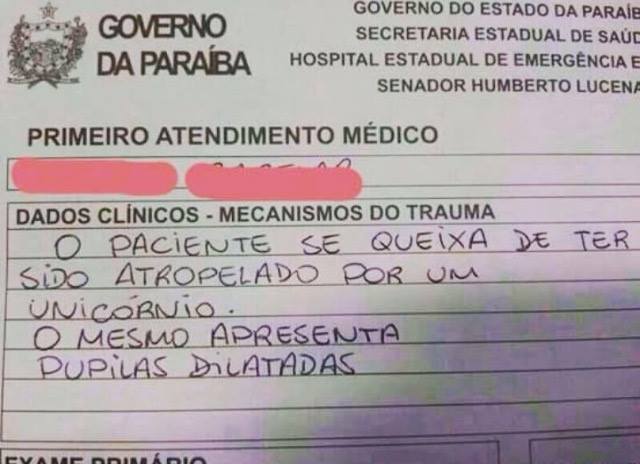 GOVERNO
DA PARAÍBA
GOVERNO DO ESTADO DA PARAÍB
SECRETARIA ESTADUAL DE SAÚD
HOSPITAL ESTADUAL DE EMERGÊNCIA E
SENADOR HUMBERTO LUCENA
PRIMEIRO ATENDIMENTO MÉDICO
DADOS CLÍNICOS - MECANISMOS DO TRAUMA
O PACIENTE SE QUEIXA DE TER
SIDO ATROPELADO POR UM
UNICÓRNIO.
O MESMO APRESENTA
PUPILAS DILATADAS
EXAME PRIMÁRIO